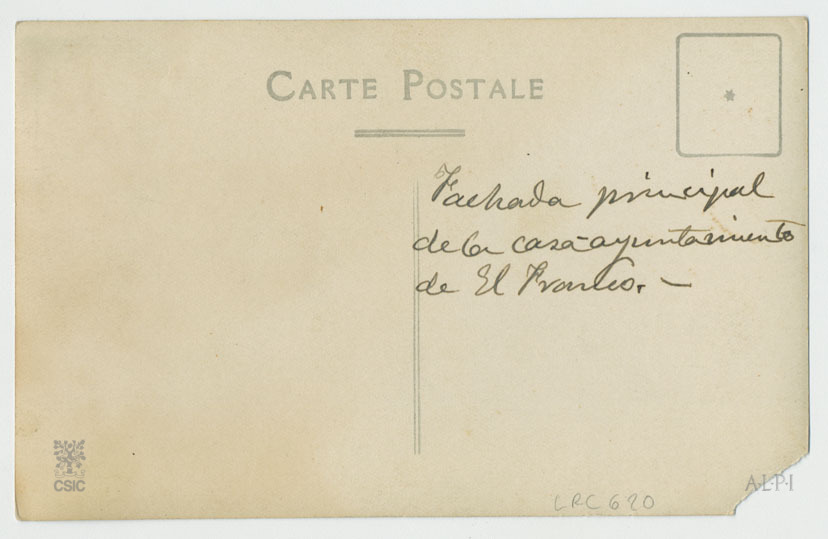 CARTE POSTALE
Fachada principal
de la casa-ayuntamiento
de El Franco. —
CSIC
A·L·P·I
LRC 620